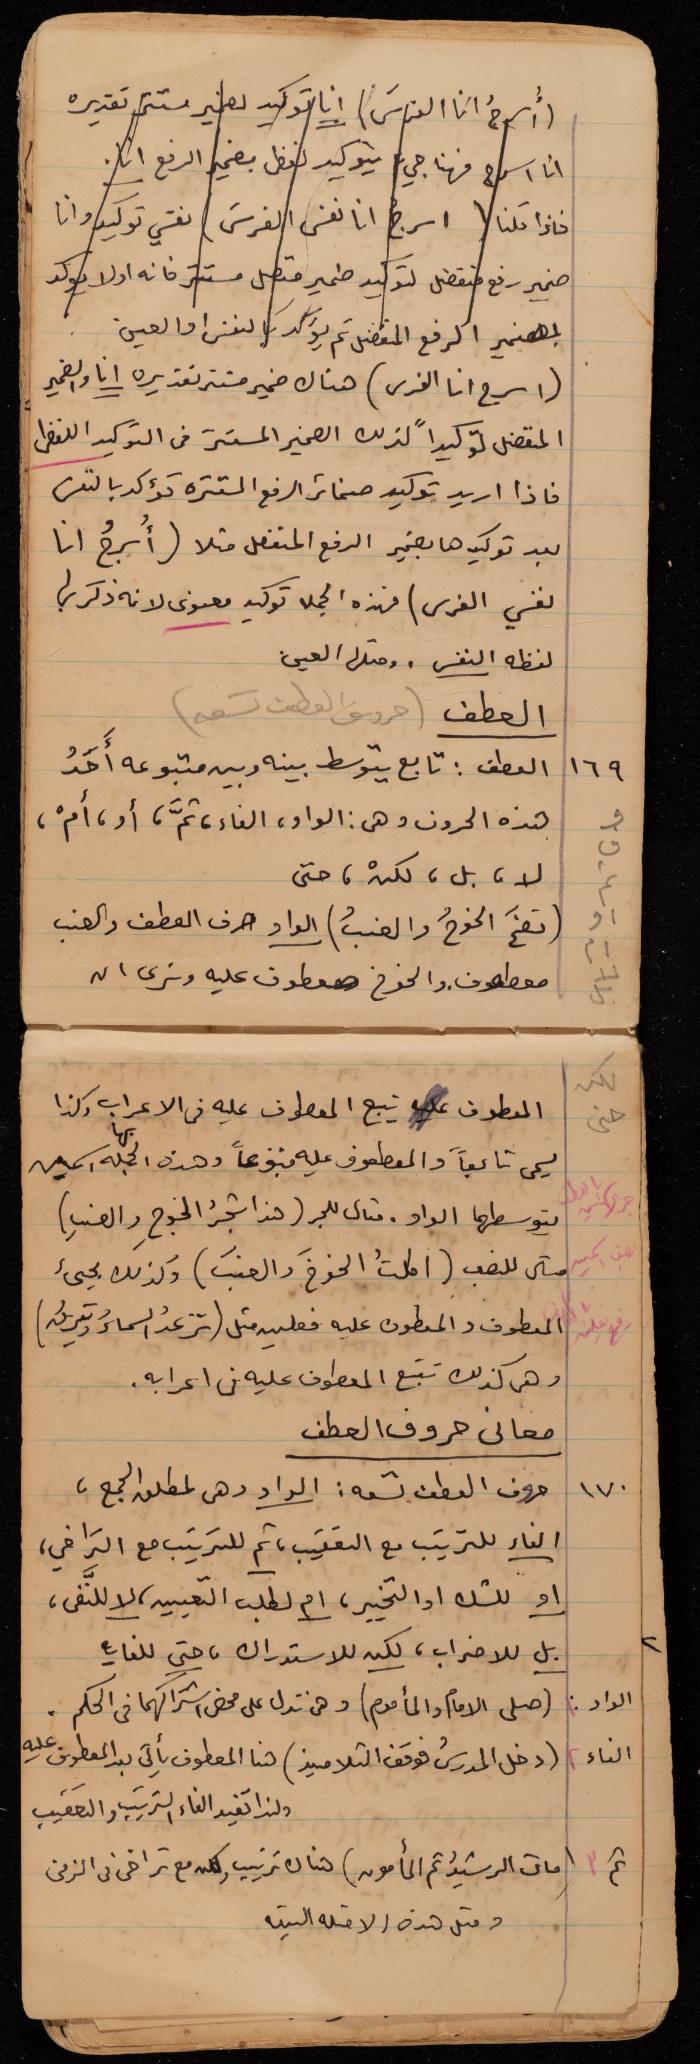 (أُسرجُ انا الفرسَ) انا توكيد لضمير مستتر تقديره
انا اسرج فهنا جيء بتوكيد لفظي بضمير الرفع انا.
فاذا قلنا ( اسرجُ انا نفسي الفرسَ) نفسي توكيد وانا
ضمير رفع منفصل لتوكيد ضمير متصل مستتر فانه اولا يؤكد
بضمير الرفع المنفصل ثم يؤكد بالنفس او العين
(اسرج انا الفرس) هناك ضمير مستتر تقديره انا والضمير
المنفصل توكيداً لذلك الضمير المستتر فى التوكيد اللفظي
فاذا اريد توكيد ضمائر الرفع المستتره تؤكد بالنفس
بعد توكيدها بضمير الرفع المنفصل مثلا (أُسرجُ انا
نفسي الفرس) فهذه الجملة توكيد معنوى لانه ذكر بها
لفظه النفس . ومثلها العين
العطف (حروف العطف تسعه)
١٦٩ العطف : تابع يتوسط بينه وبين متبوعه أَحَدُ
هذه الحروف وهى : الواو، الفاء، ثمَّ، أو، أمْ،
لا، بل، لكنْ، حتى
(نضجَ الخوخُ والعنبُ) الواو حرف العطف والعنب
معطوف والخوخ معطوف عليه ونرى ان
لكن
حتى
المعطوف يتبع المعطوف عليه فى الاعراب وكذا
يسمى تابعاً والمعطوف عليه متبوعاً وهذه الجملة بها اسمين
يتوسطهما الواو . مثال للجر (هذا شجرُ الخوخِ والعنبِ)
مثال للنصب (اكلتُ الخوخَ والعنبَ) وكذلك يجيئ
المعطوف والمعطوف عليه فعلين مثل (ترعدُ السماءُ وتبرقُ)
وهى كذلك تتبع المعطوف عليه فى اعرابه .
معانى حروف العطف
١٧٠ حروف العطف تسعه : الواو وهى لمطلق الجمع ،
الفاء للترتيب مع التعقيب، ثم للترتيب مع التراخي،
او للشك او التخيير، ام لطلب التعيين، لا للنَّفى،
بل للاضراب، لكن للاستدراك، حتى للغاية
الواو ١: (صلى الامام والمأموم) وهى تدل على محض اشتراكهما فى الحكم .
الفاء ٢ (دخل المدرسُ فوقف التلاميذ) هنا المعطوف يأتي بعد المعطوف عليه
ولذا تفيد الفاء الترتيب والتعقيب
ثم ٣ (مات الرشيدُ ثم المأمون) هناك ترتيب ولكن مع تراخى فى الزمن
ومثل هذه الامثله البقيه